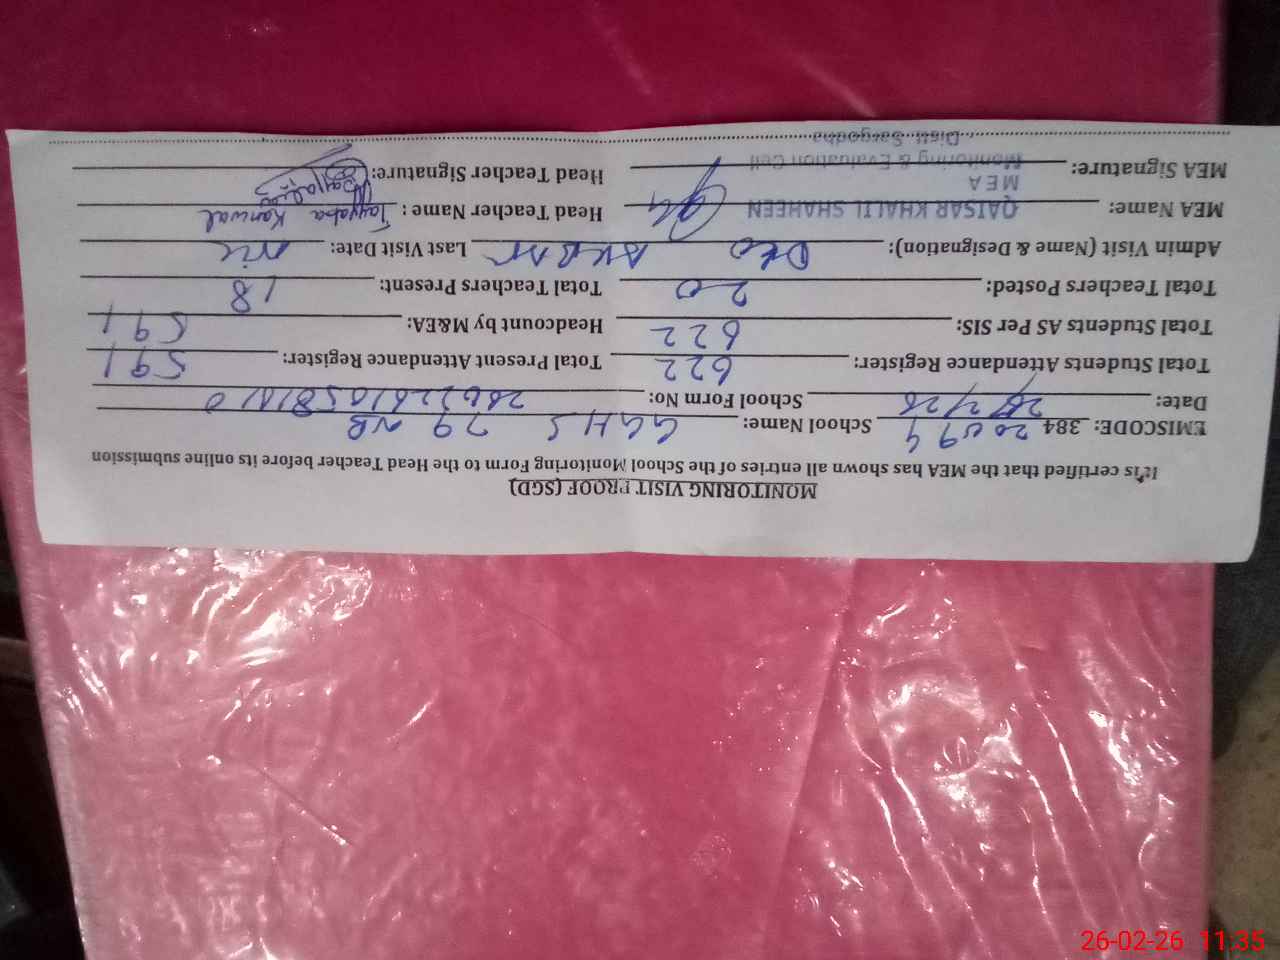 MONITORING VISIT PROOF (SGD)
It is certified that the MEA has shown all entries of the School Monitoring Form to the Head Teacher before its online submission
EMISCODE: 384 20094 School Name: GGHS 79 NB
Date: 26/2/26 School Form No:
Total Students Attendance Register: 622 Total Present Attendant Register: 591
Total Students AS Per SIS: 622 Headcount by M&EA: 591
Total Teachers Posted: 20 Total Teachers Present: 18
Admin Visit (Name & Designation): DEO AKBAR Last Visit Date: Nil
MEA Name: QAISAR KHALIL SHAHEEN Head Teacher Name: Tayyaba Kanwal
MEA
MEA Signature: Monitoring & Evaluation Cell Head Teacher Signature:
Distt. Sargodha
26-02-26 11:35